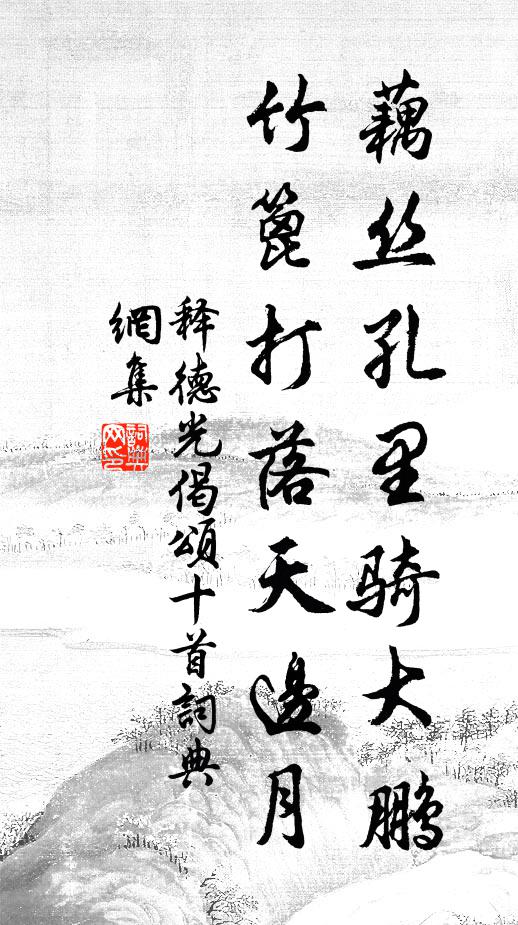 藕丝孔里骑大鹏
竹篦打落天邊月
释德光偈頌十首詞典
網集